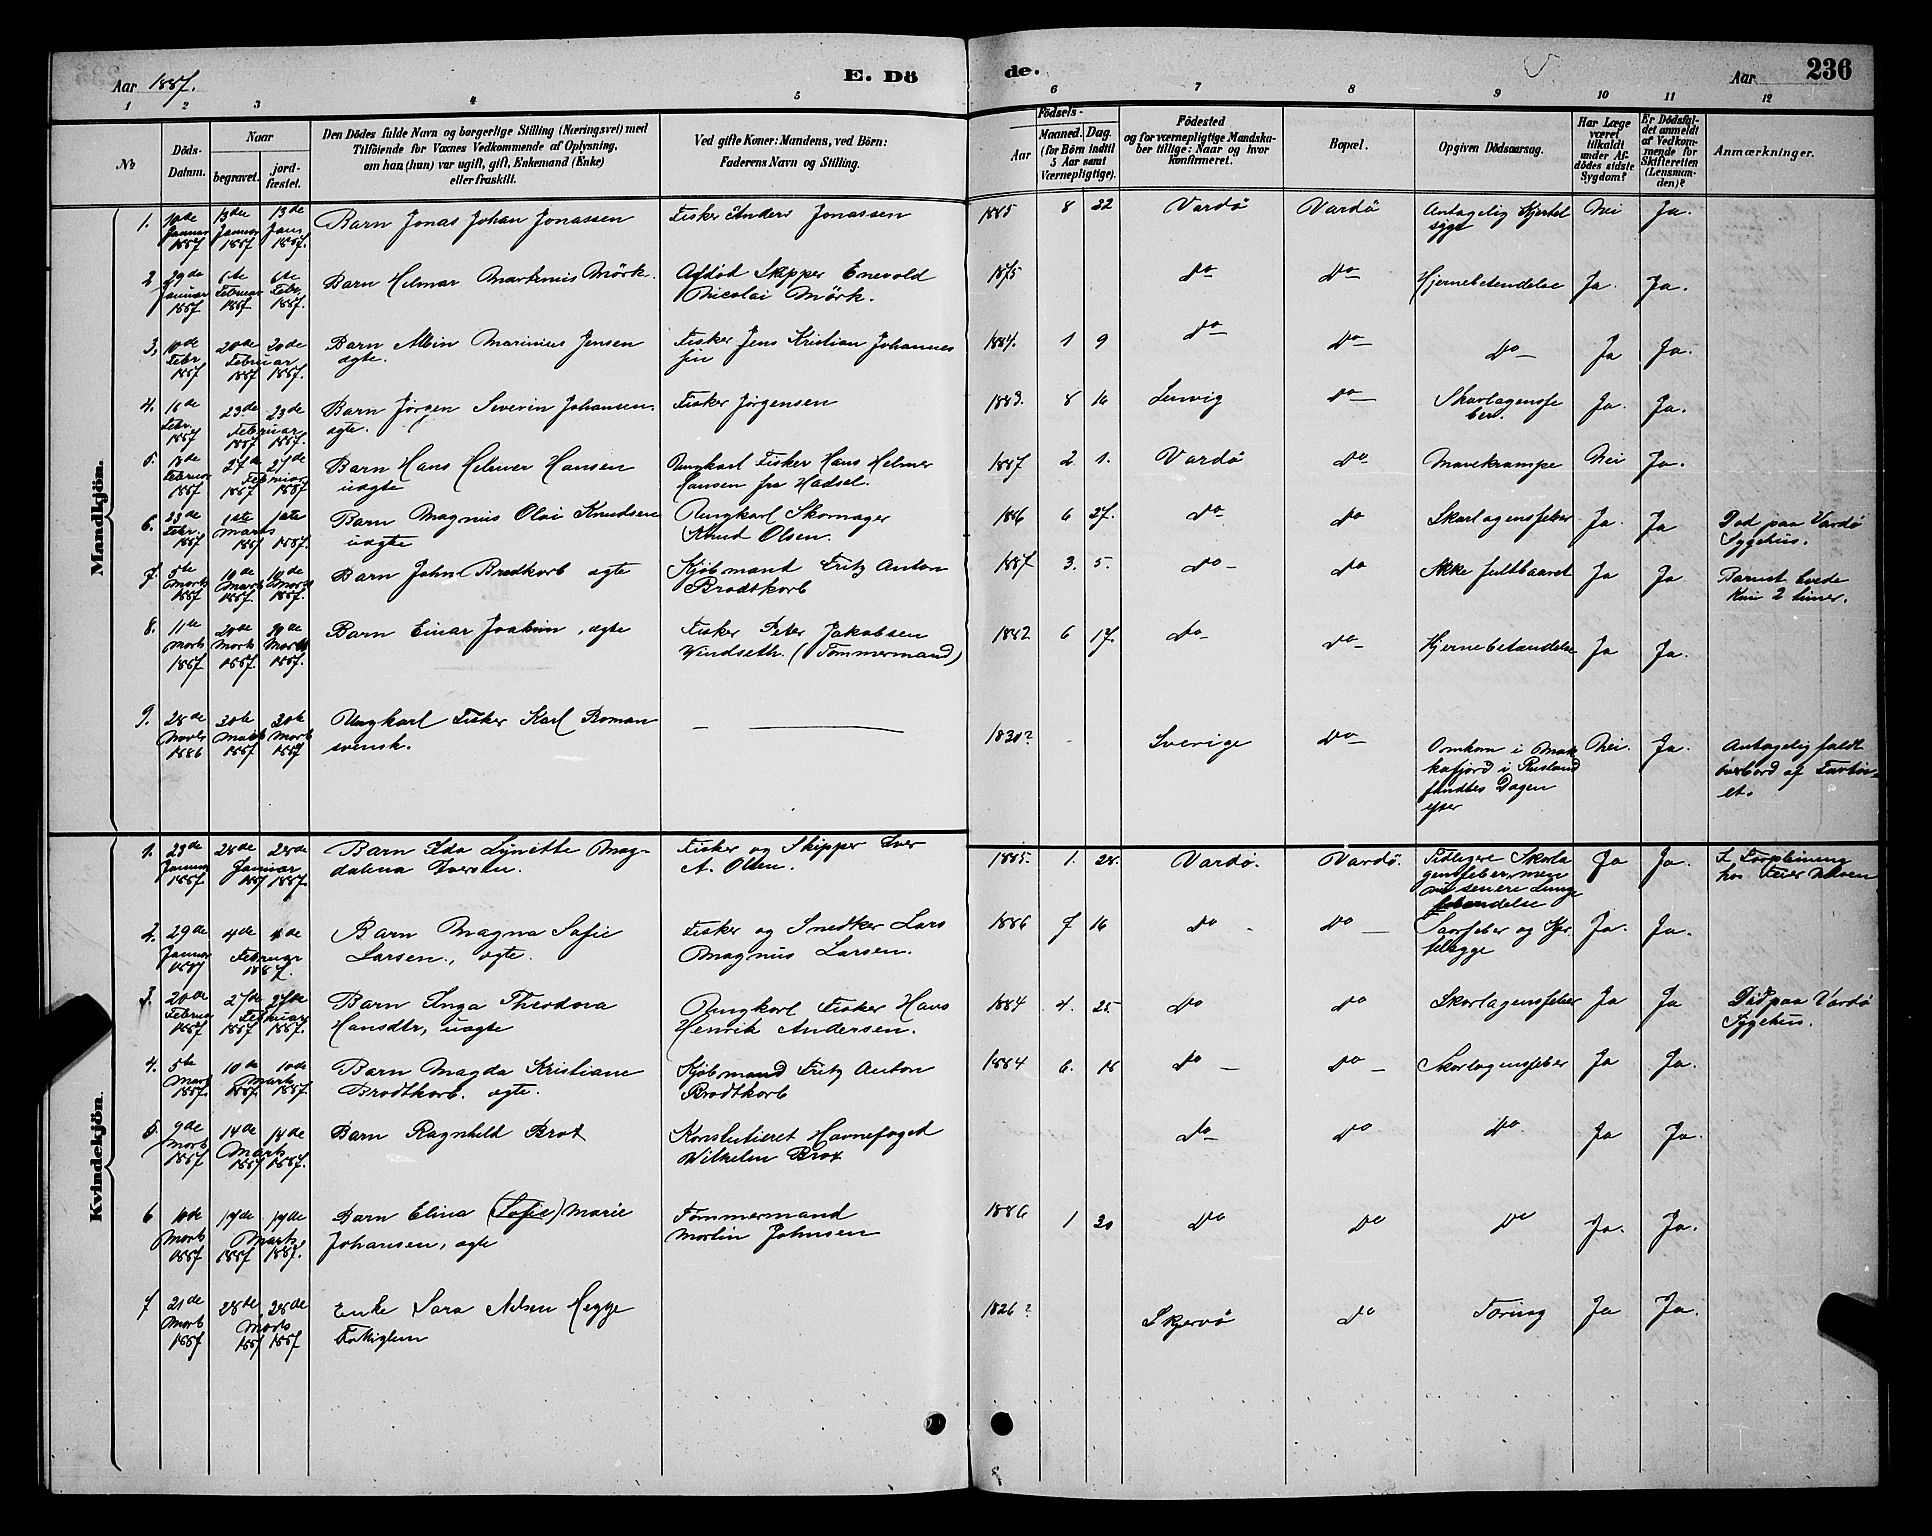 Aar 1887. E. Dö de. Aar 236
1 2 3 4 5 6 7 8 9 10 11 12
No
Döds-Datum.
Naar
begravet.
jord-fæstet.
Den Dödes fulde Navn og borgerlige Stilling (Næringsvei) med
Tilföiende for Voxnes Vedkommende af Oplysning,
om han (hun) var ugift, gift, Enkemand (Enke)
eller fraskilt.
Ved gifte Koner: Mandens, ved Börn:
Faderens Navn og Stilling.
Födsels-
Aar
Maaned. Dag.
(for Börn indtil
5 Aar samt
Værnepligtige).
Födested
og for værnepligtige Mandska-
ber tillige: Naar og hvor
konfirmeret.
Bopæl.
Opgiven Dödsaarsag.
Har Læge
været
tilkaldt
under Af-
dödes sidste
Sygdom?
Er Dödsfal-
det anmeldt
af Vedkom-
mende for
Skifteretten
(Lensman-
den)?
Anmærkninger.
Mandkjön.
1. 10de Januar 1887 13de Januar 1887 13de Jan. 1887. Barn Jonas Johan Jonassen Fisker Anders Jonassen 1885 8 22 Vardö Vardö Antagelig Kjertel Nei Ja.
syge
2 29de Januar 1887 6te Februar 1887 6te Febr. 1887. Barn Helmar Martinius Mörk. Afdöd Skipper Enevold 1875 do do Hjernebetændelse Ja. Ja.
Nicolai Mörk.
3, 10de Febr 1887 20de 20de Februar 1887 1887. Barn Albin Marinius Jensen Fisker Jens Kristian Johannes 1884. 1 9 do do do Ja Ja.
ægte. sen
4. 16de Febr. 1887 23de 23de Februar 1887 1887. Barn Jörgen Severin Johansen. Fisker Jörgensen 1883. 8 16 Lenvig do Skarlagensfe Ja. Ja.
ægte. ber.
5. 18de Februar 1887 27de 27de Februar 1887 1887 Barn Hans Helmer Hansen Ungkarl Fisker Hans Helmer 1887 2 1. Vardö do Mavekrampe Nei Ja.
uægte Hansen fra Hadsel.
6. 23de Febr. 1887 1ste 1ste Marts 1887 1887. Barn Magnus Olai Knudsen Ungkarl Skomager 1886 6 27. do do Skarlagensfeber Ja. Ja Död paa Vardö
uægte Knud Olsen. Sygehus.
7. 5te Marts 1887 10de Marts 1887 10de Marts 1887. Barn John Brodtkorb ægte Kjöbmand Fritz Anton 1887 3. 5. do do Ikke fuldbaaret Ja Ja Barnet levede
Brodtkorb kun 2 timer.
8. 11te Marts 1887 20de Marts 1887 20de Marts 1887. Barn Einar Joakim, ægte Fisker Peter Jakobsen 1882 6 17. do do Hjernebetændelse Ja Ja.
Windseth. (Tömmermand)
9. 28de Novbr 1886 30te Marts 1887 30te Marts 1887 Ungkarl Fisker Karl Boman 1830? Sverige do Omkom i Mak Nei. Ja. Antagelig faldt
svensk. kafjord i Rusland overbord af Fartöi-
fandtes Dagen et.
efter
Kvindekjön.
1. 23de Januar 1887 28de 28de Januar 1887 1887. Barn Ida Lynette Mag- Fisker og Skipper Iver 1885. 1. 28. Vardö. Vardö. Tidligere Skarla Ja Ja.
dalena Iversen. A. Olsen. gensfeber, men
senere Lunge
betændelse
2. 29de Januar 1887 4de 4de Februar 1887. Barn Magna Sofie Fisker og Snedker Lars 1886 7 16 do do Saarfeber og Kjer Ja. Ja.
Larsen., ægte. Magnus Larsen. telsyge
3. 20de Februar 1887 27de 27de Februar 1887 1887. Barn Inga Theodora Ungkarl Fisker Hans 1884 4. 25. do do Skarlagensfeber Ja Ja Död paa Vardö
Hansdtr, uægte Henrik Andersen. Sygehus.
4. 5te Marts 1887. 10de 10de Marts 1887. 1887. Barn Magda Kristiane Kjöbmand Fritz Anton 1884 6. 18 do do Skarlagensfeber Ja Ja.
Brodtkorb. ægte. Brodtkorb
5. 9de Marts 1887 14de 14de Marts 1887 1887. Barn Ragnhild Brox Konstitueret Havnefoged do do do Ja Ja.
Wilhelm Brox
6 10de Marts 1887 17de 17de Marts, 1887 1887. Barn Elina (Sofie) Marie Tömmermand 1886 1 20 do do do Ja. Ja.
Johansen, ægte Martin Johnsen
7 21de Marts 1887 28de 28de Marts 1887 1887 Enke Sara Nilsen Hegge 1826? Skjervö do Tæring Ja Ja.
Fattiglem